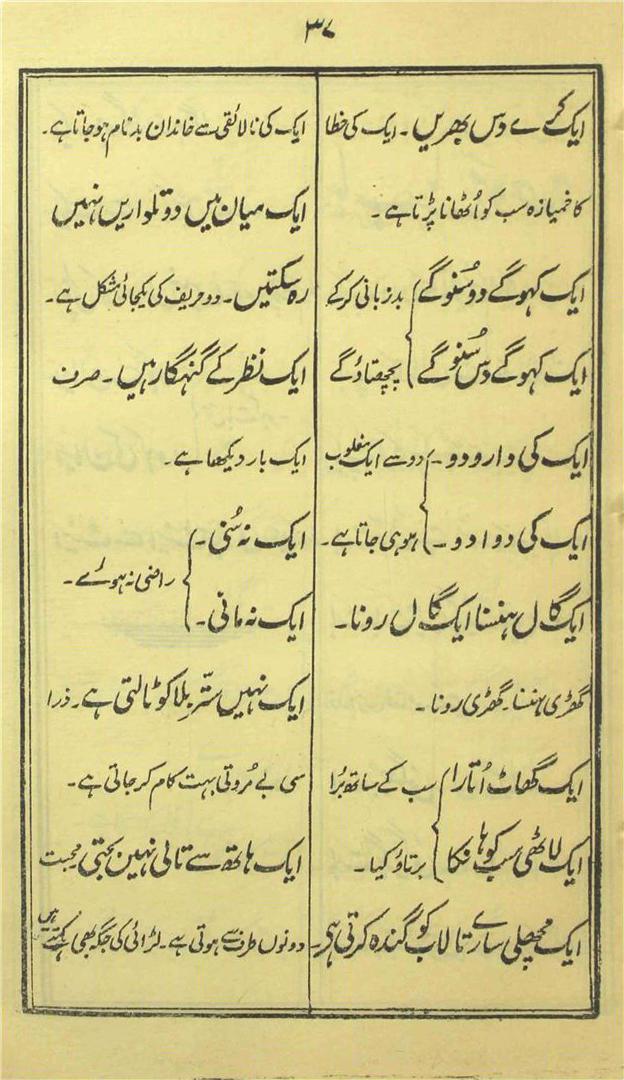 ۳۷
ایک کرے دس بھریں۔ ایک کی خطا
کا خمیازہ سب کو اُٹھانا پڑتا ہے۔
ایک کہوگے دو سُنوگے } بدزبانی کرکے
ایک کہوگے دس سُنوگے } پچھتاؤگے
ایک کی دارو دو۔ } دو سے ایک مغلوب
ایک کی دوا دو۔ } ہو ہی جاتا ہے۔
ایک گال ہنسنا ایک گال رونا۔
گھڑی ہنسنا۔ گھڑی رونا۔
ایک گھاٹ اُتارا } سب کے ساتھ بُرا
ایک لاٹھی سب کو ہانکا } برتاؤ کیا۔
ایک مچھلی سارے تالاب کو گندہ کرتی ہے۔
ایک کی نالائقی سے خاندان بدنام ہوجاتا ہے۔
ایک میان میں دو تلواریں نہیں
رہ سکتیں۔ دو حریف کی یکجائی مشکل ہے۔
ایک نظر کے گنہگار ہیں۔ صرف
ایک بار دیکھا ہے۔
ایک نہ سُنی۔ } راضی نہ ہوئے۔
ایک نہ مانی۔ }
ایک نہیں ستّر بلا کو ٹالتی ہے۔ ذرا
سی بے مُروتی بہت کام کر جاتی ہے۔
ایک ہاتھ سے تالی نہیں بجتی محبت
دونوں طرف سے ہوتی ہے۔ لڑائی کی جگہ بھی کہتے ہیں